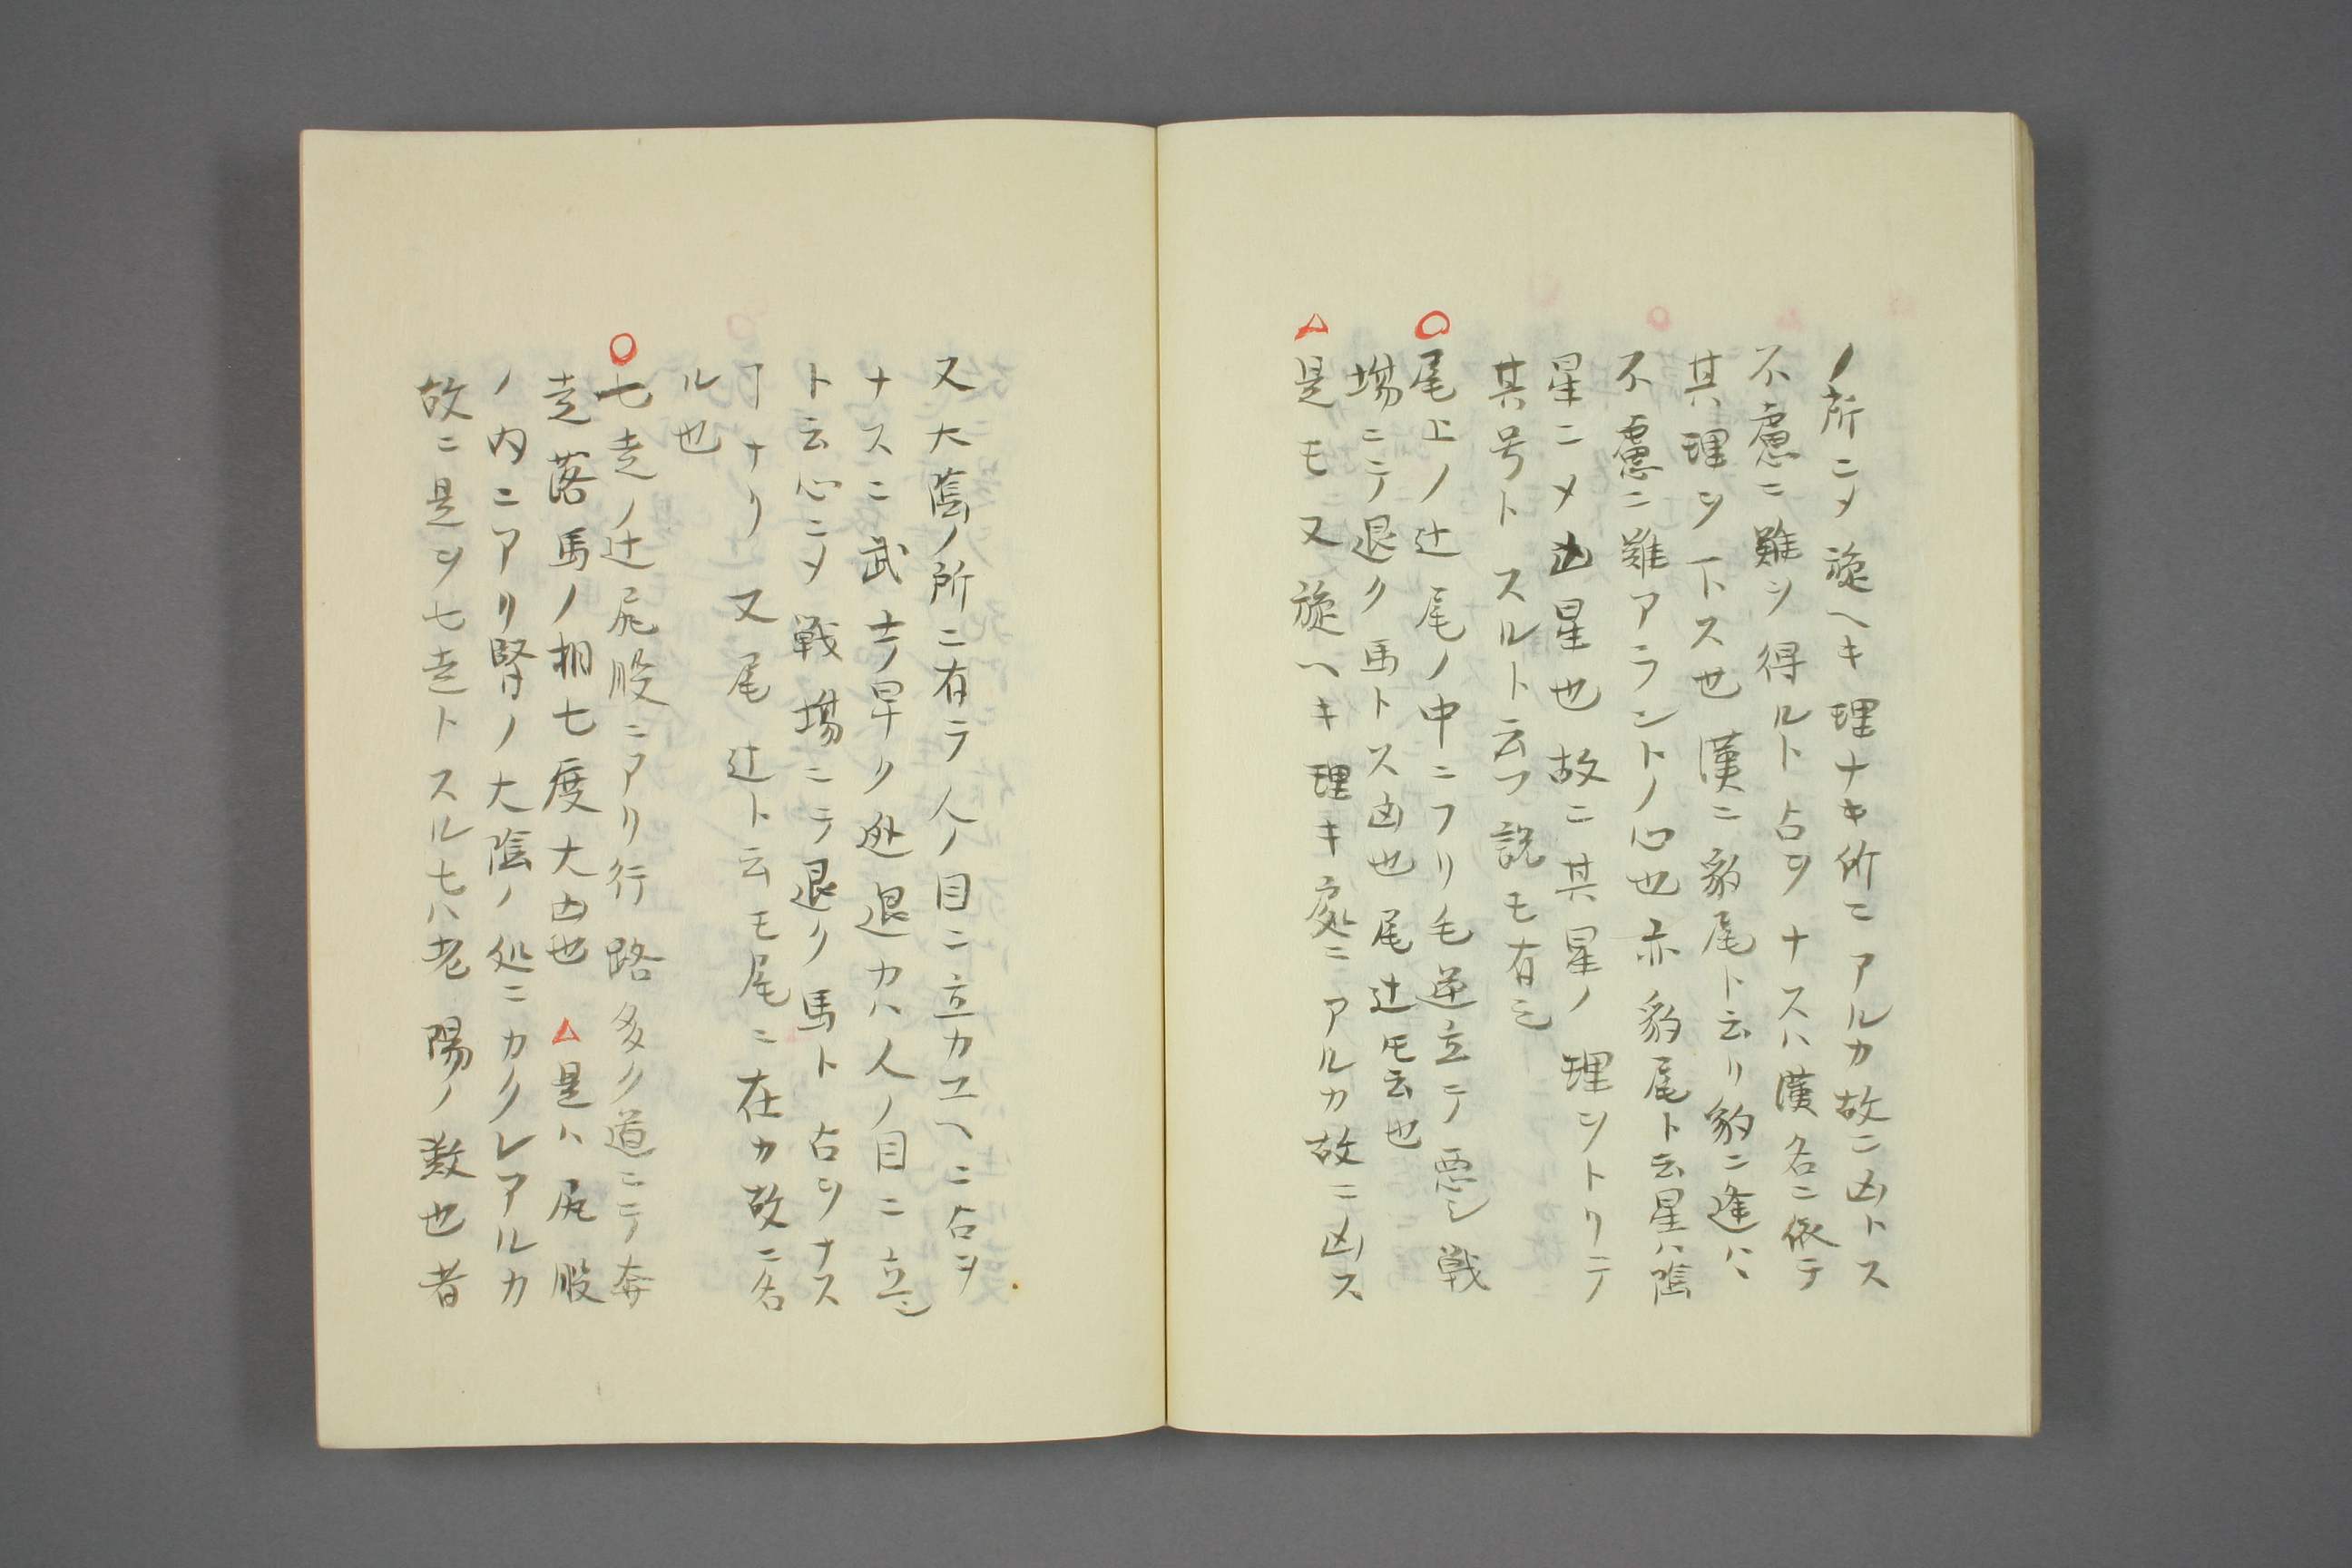 ノ所ニメ旋ヘキ理ナキ所ニアルカ故ニ凶トス
不慮ニ難ヲ得ルト占ヲナスハ漢名ニ依テ
其理ヲ下ス也漢ニ豹尾ト云リ豹ニ逢ハヽ
不慮ニ難アラントノ心也亦豹尾ト云星ハ陰
星ニメ凶星也故ニ其星ノ理ヲトリテ
其号トスルト云フ説モ有シ
○尾上ノ辻尾ノ中ニフリ毛逆立テ悪シ戦
場ニテ退ク馬トス凶也尾辻トモ云也
△是モ又旋ヘキ理キ処ニアルカ故ニ凶ス
又大陰ノ所ニ有テ人ノ目ニ立カユヘニ占ヲ
ナスニ武士ノ早ク迯退カハ人ノ目ニ立シ
ト云心ニメ戦場ニテ退ク馬ト占ヲナス
ヿナリ又尾辻ト云モ尾ニ在カ故ニ名
ル也
○七走ノ辻尻股ニアリ行路多ク道ニテ奔
走落馬ノ相七度大凶也△是ハ尻股
ノ内ニアリ腎ノ大陰ノ処ニカクレアルカ
故ニ是ヲ七走トスル七ハ老陽ノ数也者